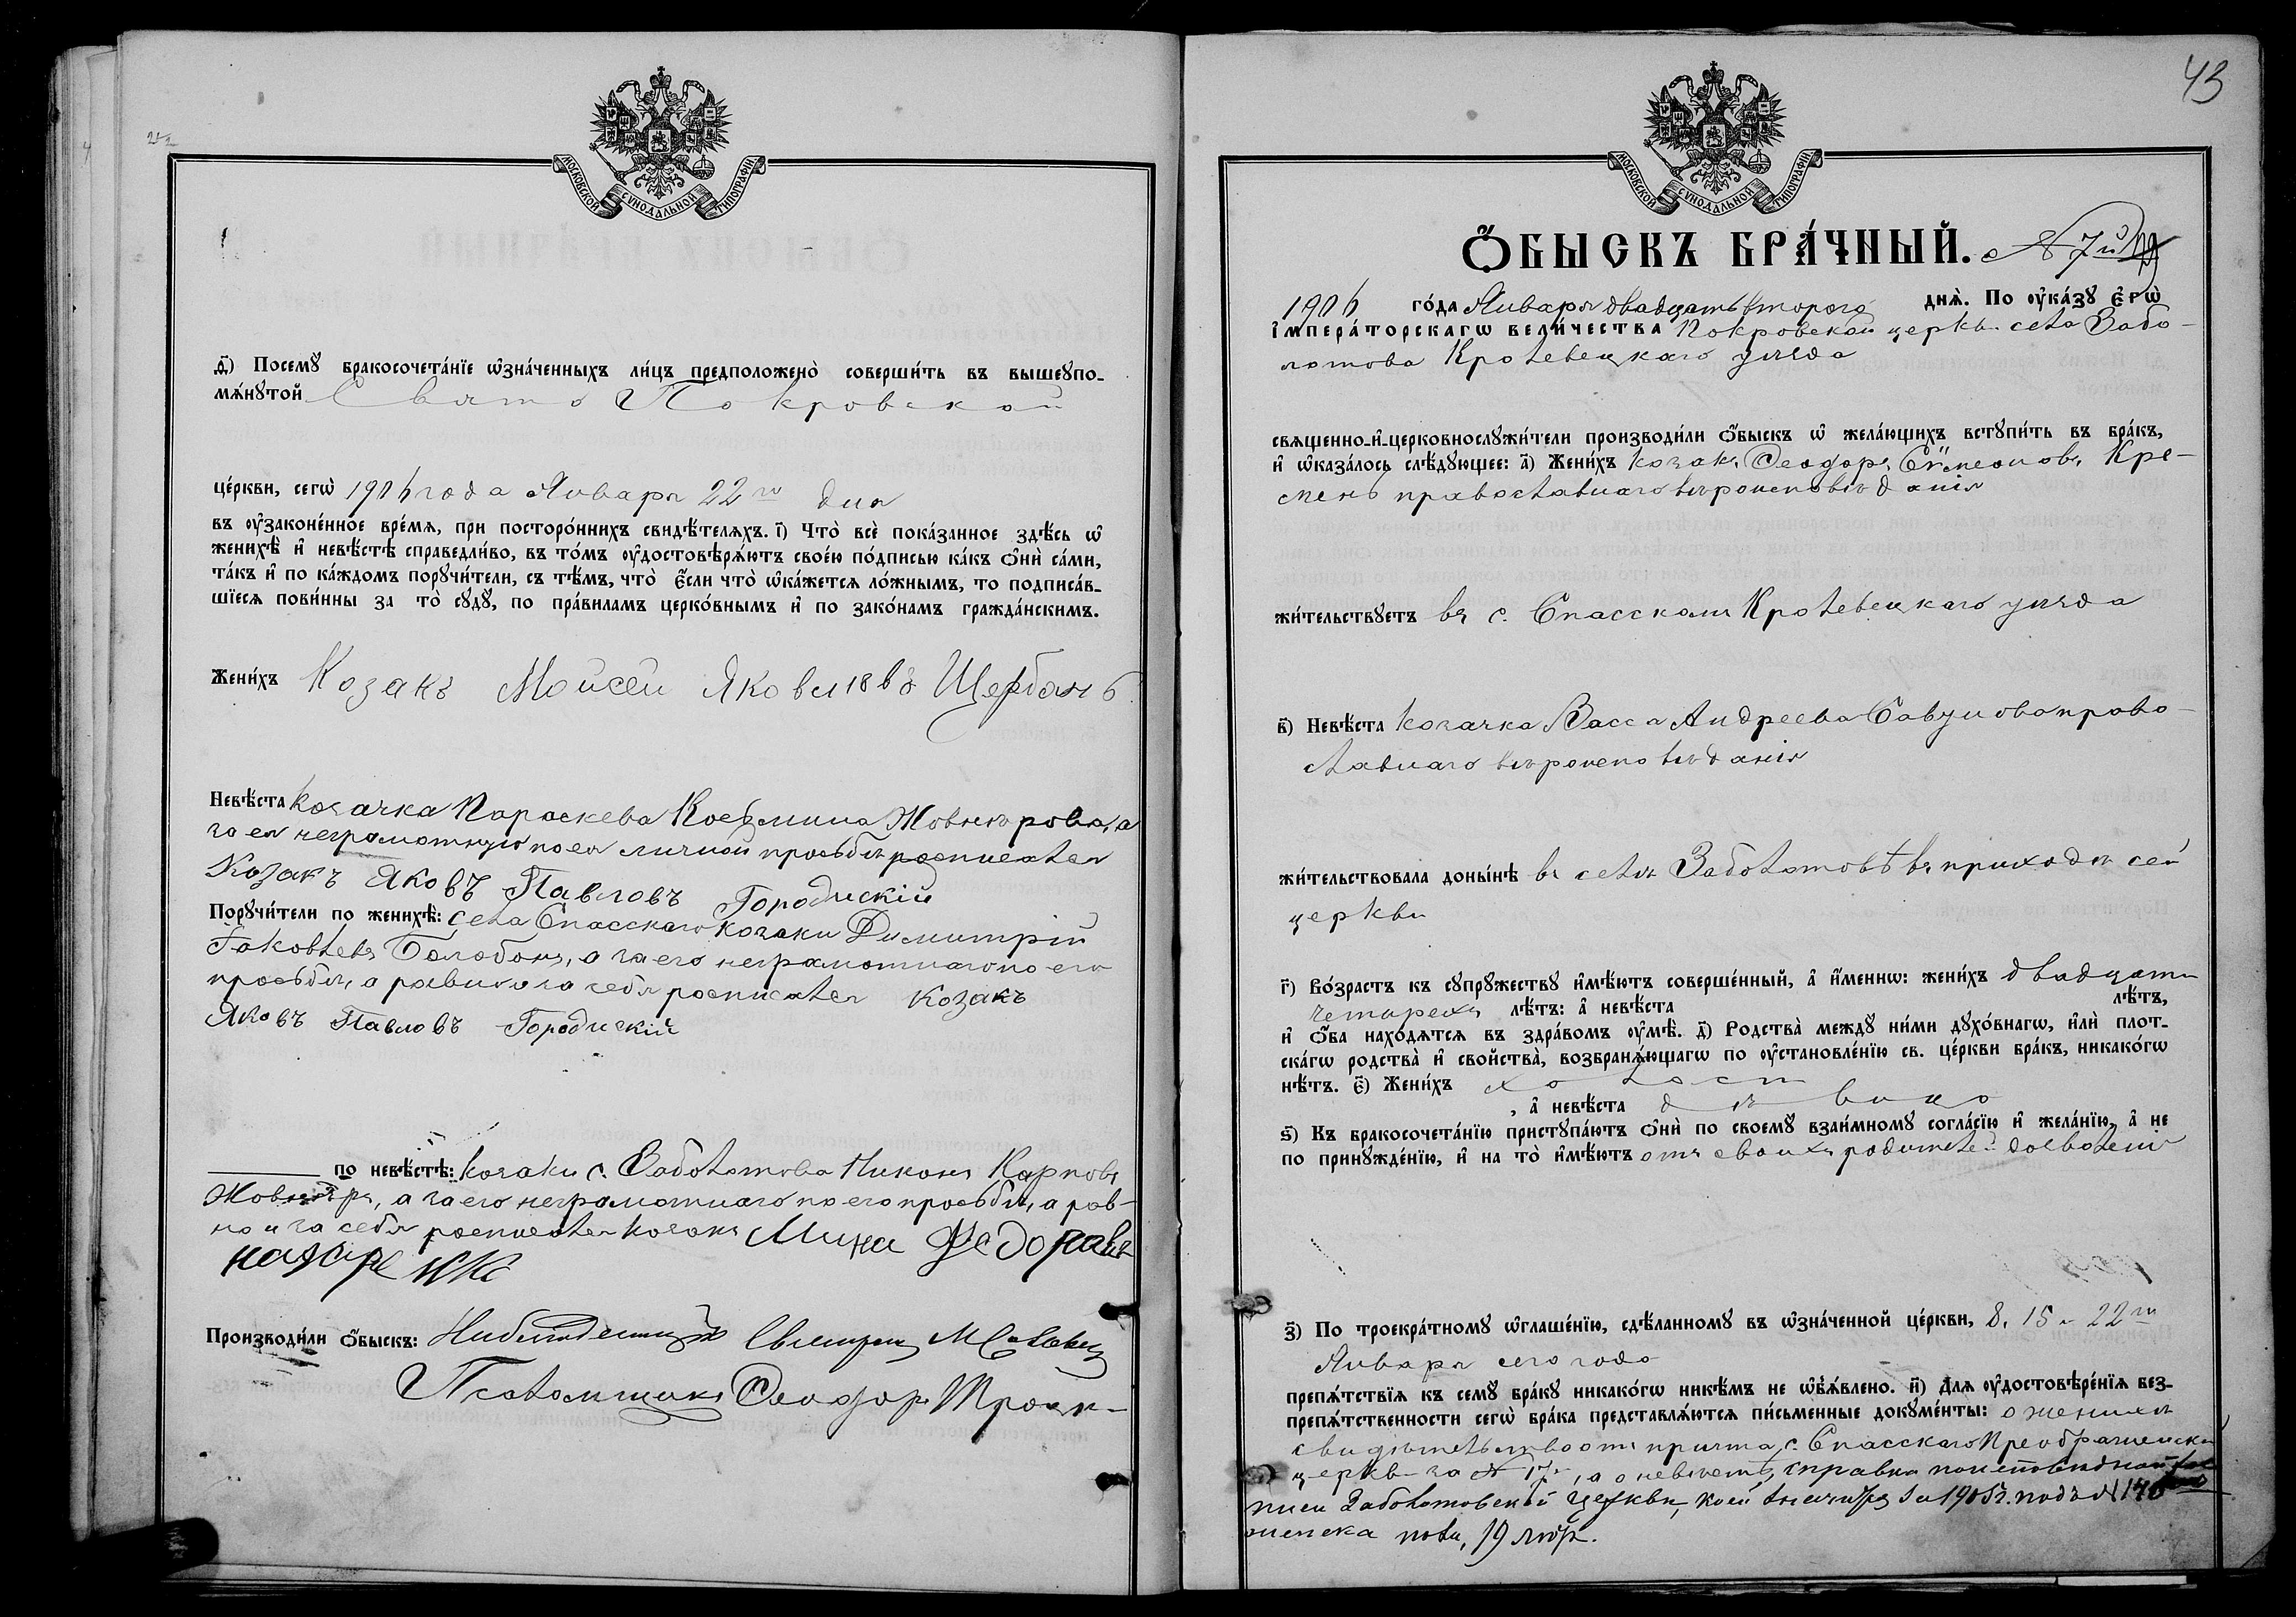 МОСКОВСКОЙ СѴНОДАЛЬНОЙ ТИПОГРАФІИ.
ѳ҃) Посемꙋ̀ бракосочета́нїе ѡ҆зна́ченныхъ ли́цъ предположено̀ соверши́ть въ вышеꙋпо-
мѧ́нꙋтой Свято Покровской
це́ркви, сегѡ̀ 1906 года Января 22го дня
въ ᲂу҆законе́нное вре́мѧ, при посторо́ннихъ свидѣ́телѧхъ. і҃) Что̀ всѐ пока́занное здѣ́сь ѡ҆
женихѣ̀ и҆ невѣ́стѣ справедли́во, въ то́мъ ᲂу҆достовѣрѧ́ютъ свое́ю по́дписью ка́къ ѻ҆нѝ са́ми,
та́къ и҆ по ка́ждомъ порꙋчи́тели, съ тѣ́мъ, что̀ є҆́сли что̀ ѡ҆ка́жетсѧ ло́жнымъ, то подписа́в-
шїесѧ пови́нны за то̀ сꙋдꙋ̀, по пра́виламъ церко́внымъ и҆ по зако́намъ гражда́нскимъ.
Жени́хъ Козакъ Мойсей Яковлевъ Щербань
Невѣ́ста козачка Параскева Косьмина Жовнѣрова, а
за ея неграмотную по ея личной просьбѣ росписался
Козакъ Яковъ Павловъ Городискій
Порꙋчи́тели по женихѣ̀: села Спасскаго козаки Димитрій
Іаковлевъ Балобонъ, а за его неграмотнаго по его
просьбѣ, а равно и за себя росписался Козакъ
Яковъ Павловъ Городискій
по невѣ́стѣ: козаки с. Заболотова Никонъ Карповъ
Жовнѣръ, а за его неграмотнаго по его просьбѣ, а рав-
но и за себя росписался козакъ Мина Федоравъ
назаренко
Производи́ли ѻ҆́быскъ: Священ
Псаломщикъ Ѳеодоръ
43
МОСКОВСКОЙ СѴНОДАЛЬНОЙ ТИПОГРАФІИ.
Ѻ҆́БЫСКЪ БРА́ЧНЫЙ. № 7й
1906 го́да Января двадцать второго днѧ̀. По ᲂу҆ка́зꙋ Є҆гѡ̀
І҆мпера́торскагѡ вели́чества Покровской церкви села Забо-
лотова Кролевецкаго уѣзда
свѧщенно-и҆-церковнослꙋжи́тели производи́ли ѻ҆́быскъ ѡ҆ жела́ющихъ встꙋпи́ть въ бра́къ,
и҆ ѡ҆каза́лось слѣ́дꙋющее: а҃) Жени́хъ козакъ Ѳеодоръ Сѵмеоновъ Кре-
мень православнаго вѣроисповѣданія
жи́тельствꙋетъ въ с. Спасскомъ Кролевецкаго уѣзда
в҃) Невѣ́ста козачка Васса Андреева Савунова право-
славнаго вѣроисповѣданія
жи́тельствовала доны́нѣ въ селѣ Заболотовѣ въ приходѣ сей
церкви
г҃) Во́зрастъ къ сꙋпрꙋ́жествꙋ и҆мѣ́ютъ соверше́нный, а҆ и҆́меннѡ: жени́хъ двадцати
четырехъ лѣ́тъ: а҆ невѣ́ста лѣ́тъ,
и҆ ѻ҆́ба нахо́дѧтсѧ въ здра́вомъ ᲂу҆мѣ̀. д҃) Родства̀ междꙋ̀ ни́ми дꙋхо́внагѡ, и҆лѝ плот-
ска́гѡ родства̀ и҆ сво́йства̀, возбранѧ́ющагѡ по ᲂу҆становле́нїю св. це́ркви бра́къ, никако́гѡ
нѣ́тъ. є҃) Жени́хъ холост
, а҆ невѣ́ста дѣвица
ѕ҃) Къ бракосочета́нїю пристꙋпа́ютъ ѻ҆нѝ по своемꙋ̀ взаи́мномꙋ согла́сїю и҆ жела́нїю, а҆ не
по принꙋжде́нїю, и҆ на то̀ и҆мѣ́ютъ отъ своихъ родителей дозволеніе
з҃) По троекра́тномꙋ ѡ҆глаше́нїю, сдѣ́ланномꙋ въ ѡ҆зна́ченной це́ркви, 8, 15 и 22го
Января сего года
препѧ́тствїѧ къ семꙋ̀ бра́кꙋ никако́гѡ никѣ́мъ не ѡ҆б̾ѧ́влено. и҃) Длѧ ᲂу҆достовѣре́нїѧ без-
препѧ́тственности сегѡ̀ бра́ка представлѧ́ютсѧ пи́сьменные докꙋме́нты: о женихѣ
свидѣтельство отъ причта с. Спасскаго Преображенской
церкви за № 17, а о невѣстѣ, справка по исповѣдной рос
писи Заболотовской церкви, коей за 1905 г. подъ №